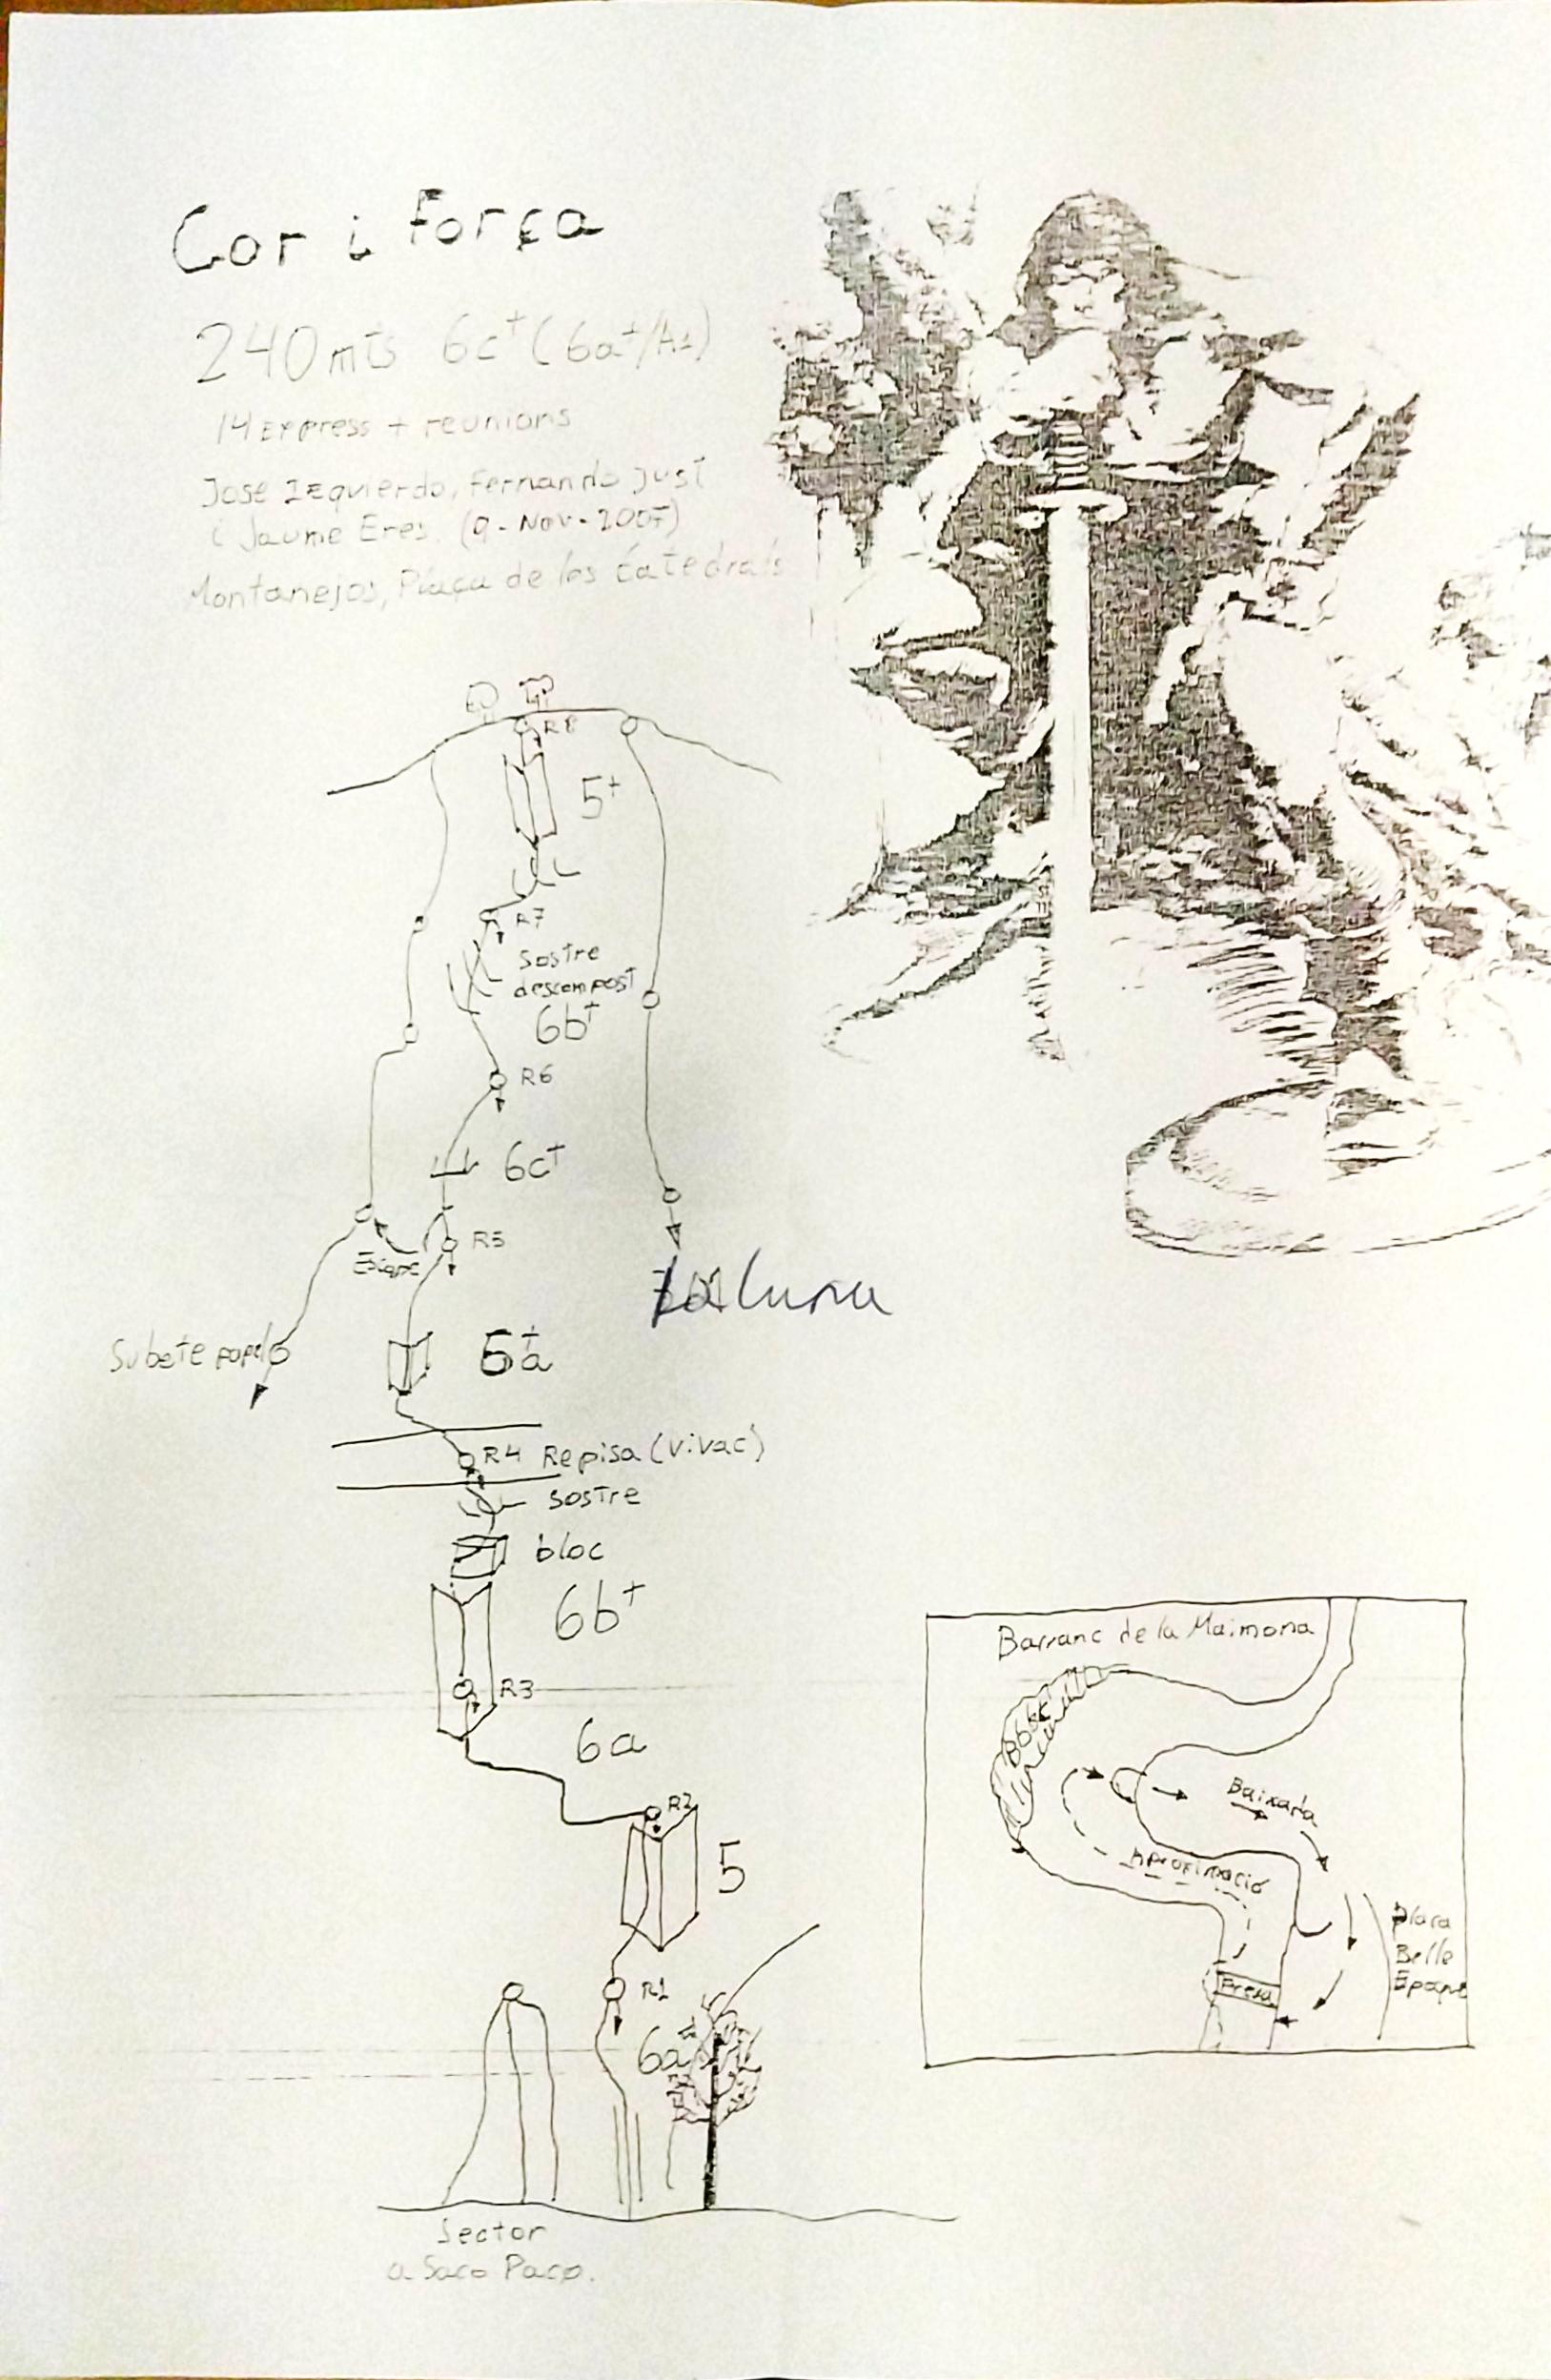 Cor i Força
240 mts 6c+ (6a+/A1)
14 Express + reunions
Jose Izquierdo, Fernando Just
i Jaume Eres. (9-Nov-2007)
Montanejos, Plaça de les Catedrals
R8
5+
R7
Sostre
descompost
6b+
R6
6c+
R5
Escape
La Luna
Subete papelo
R4 Repisa (vivac)
sostre
bloc
6b+
R3
6a
R2
5
R1
6a+
Sector
a Saco Paco.
Barranc de la Maimona
Baixada
Aproximació
Plaça
Belle
Epoque
Presa